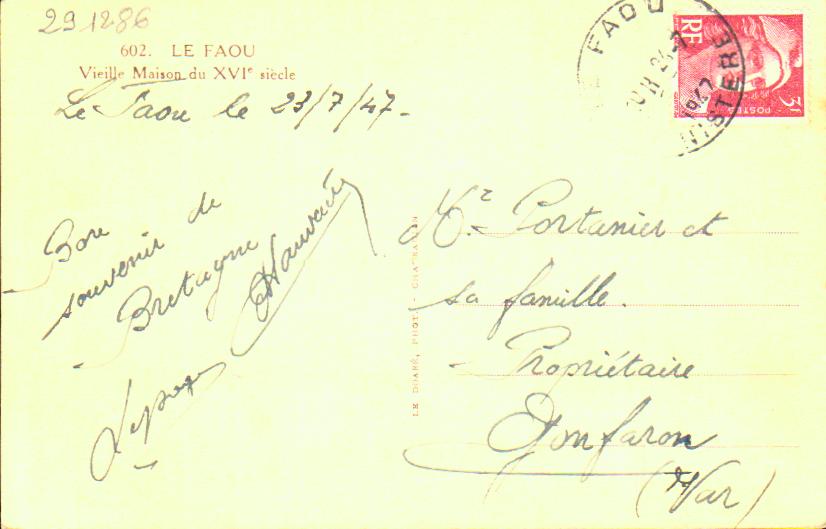 291286
602. LE FAOU
Vieille Maison du XVIe siècle
Le Faou le 23/7/47-
Bon
souvenir de
Bretagne
LE DOARÉ, PHOT. - CHATEAULIN
Mr Portanier et
sa famille.
- Propriétaire
Gonfaron
(Var)
LE FAOU
24-7
1947
FINISTERE
RF
POSTES
3F